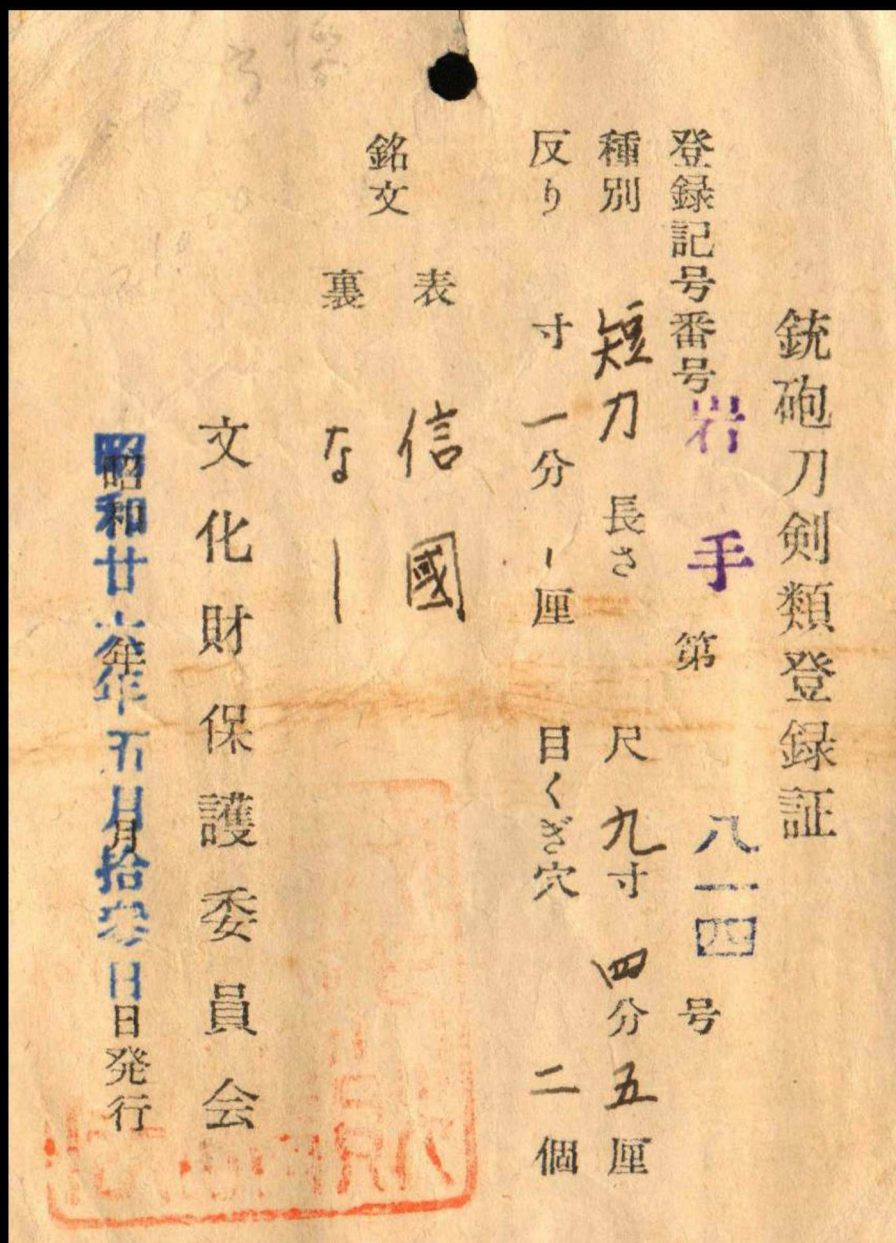 銃砲刀剣類登録証
登録記号番号 岩手 第 八一四 号
種別 短刀 長さ 尺 九寸 四分 五厘
反り 寸 一分 厘 目くぎ穴 二 個
銘文
表 信國
裏 なし
文化財保護委員会
昭和廿六年五月拾参日発行